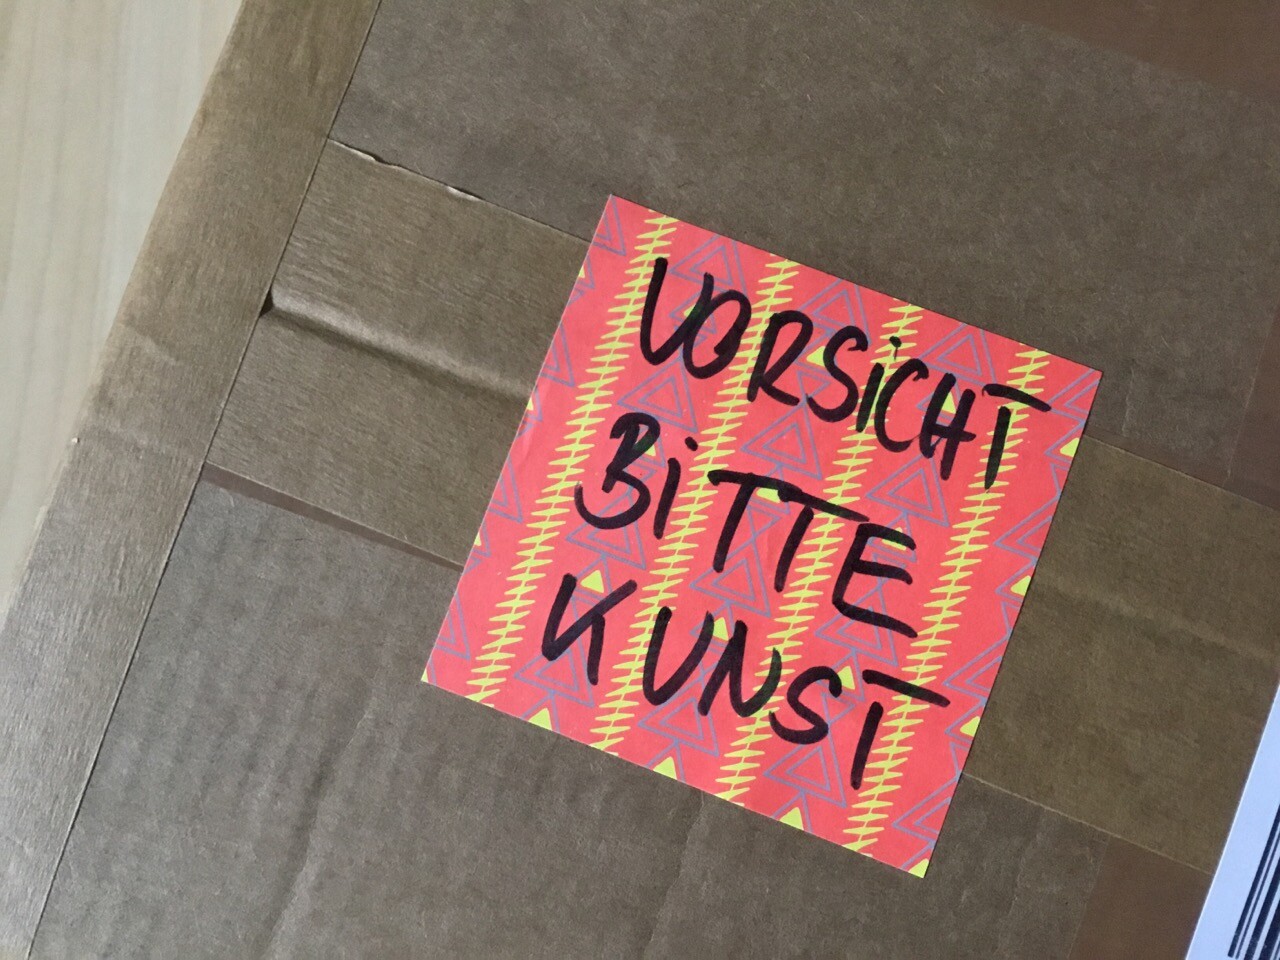 VORSICHT
BITTE
KUNST